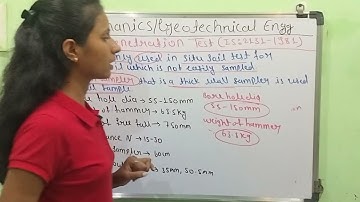 chanics/Geotechnical Engg
enetration Test (IS:2131-1981)
only used in situ soil test for
soil which is not easily sampled.
sampler that is a thick wall sampler is used
soil sample
hole dia → 55-150mm
of hammer → 63.5kg
of free fall → 750mm
ance N → 15-30
sampler → 60cm
→ 35mm, 50.5mm
Bore hole dia
55-150mm
weight of hammer
63.5kg